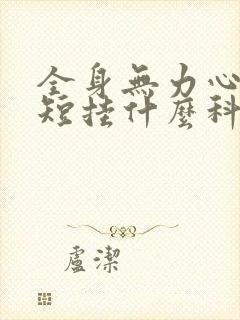 全身無力心
短掛什麼科
盧潔